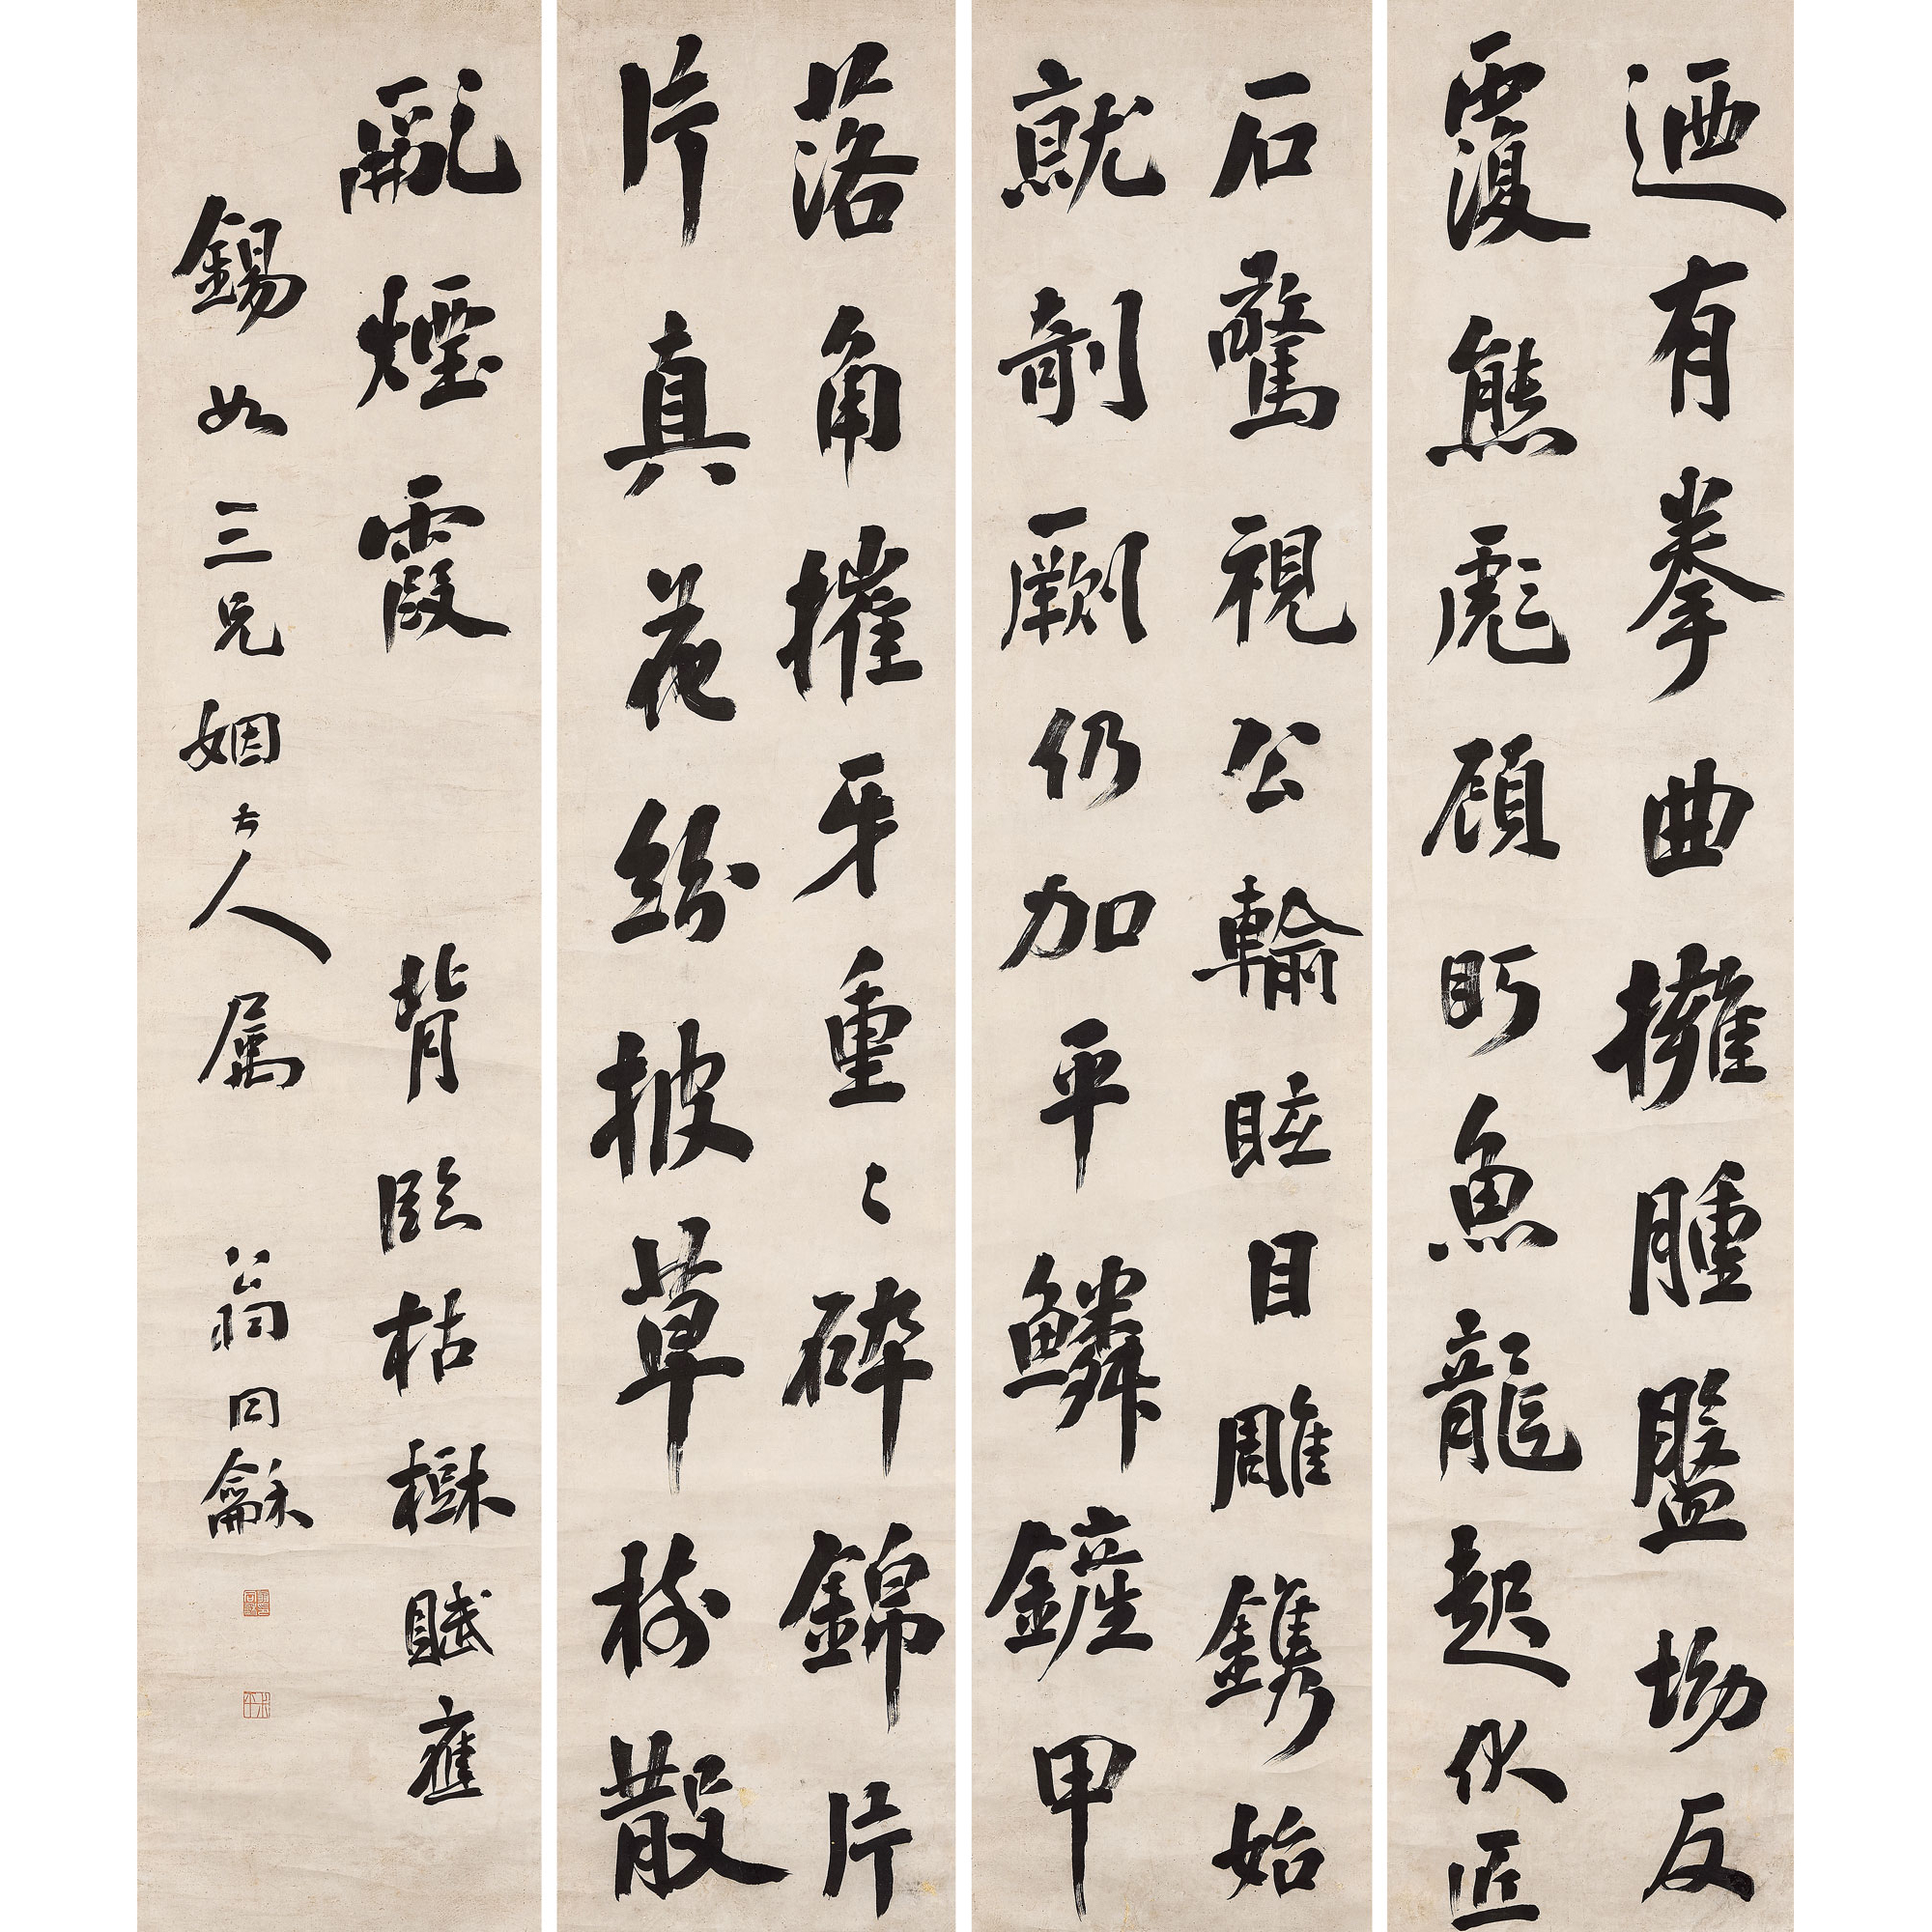 迺有拳曲擁腫盤坳反
覆熊彪顧眄魚龍起伏匠
石驚視公輸眩目雕鐫始
就剞劂仍加平鱗鏟甲
落角摧牙重〻碎錦片
片真花紛披草樹散
亂煙霞 背臨枯樹賦應
錫如三兄姻大人属 翁同龢